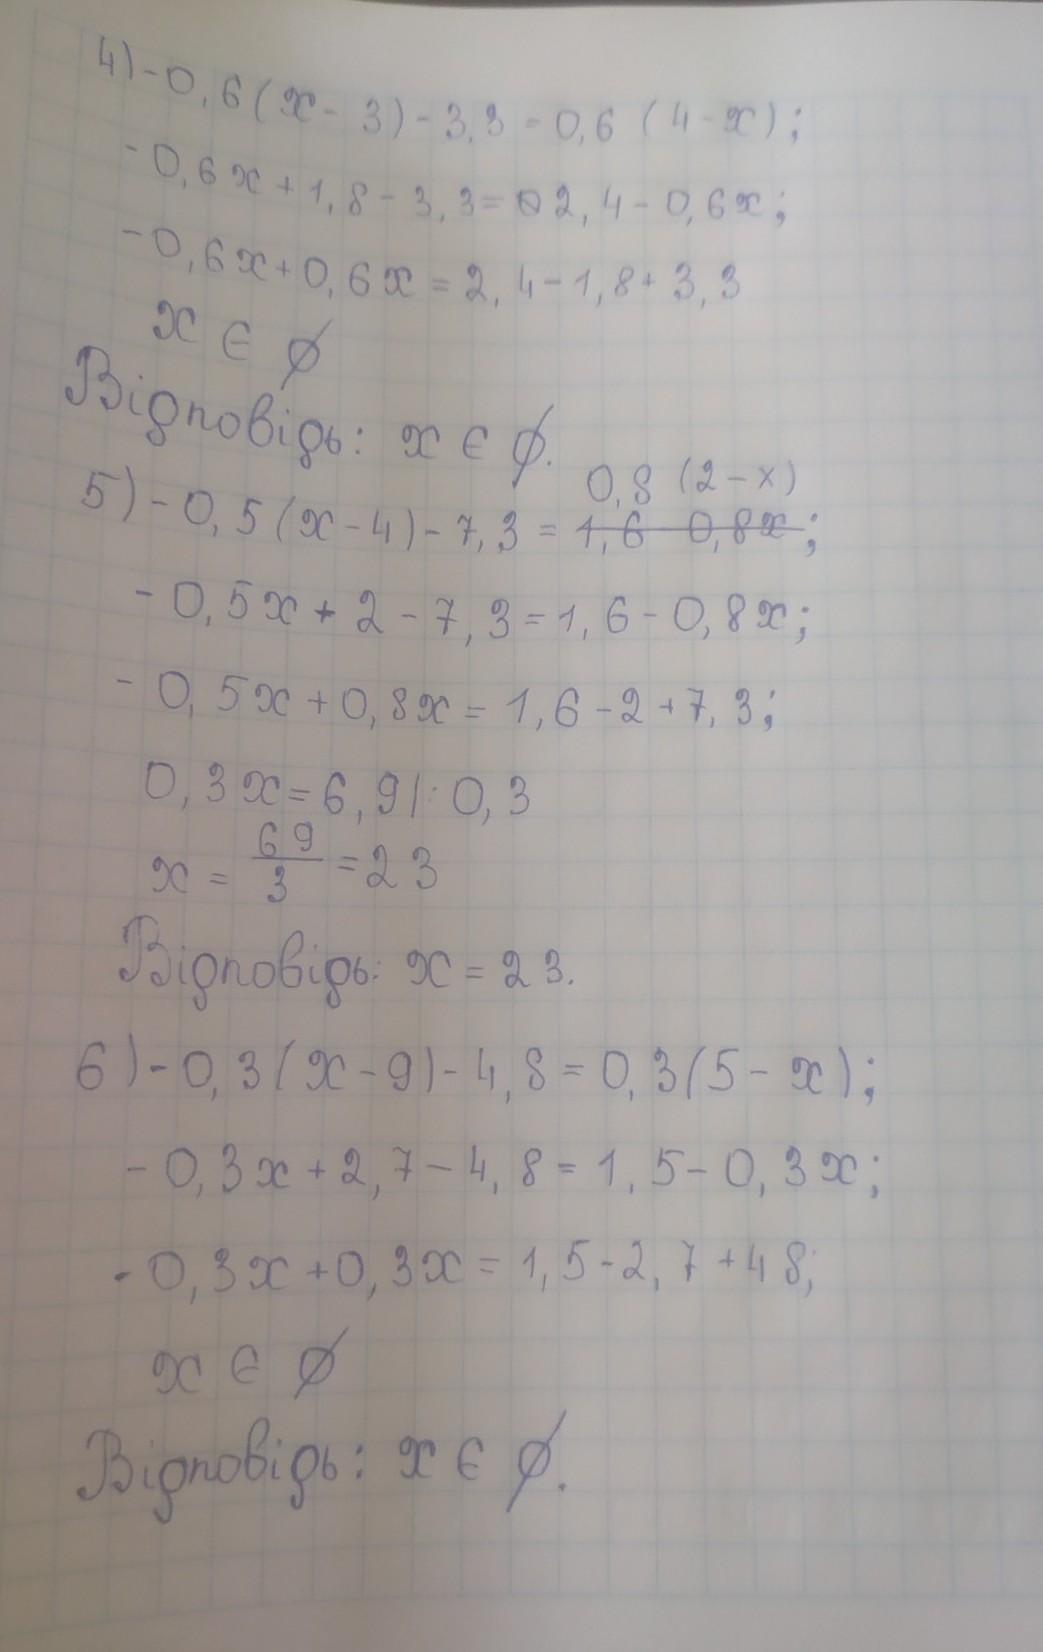 4) -0,6(x - 3) - 3,3 = 0,6 (4 - x);
-0,6x + 1,8 - 3,3 = 2,4 - 0,6x;
-0,6x + 0,6x = 2,4 - 1,8 + 3,3
x ∈ ∅
Відповідь: x ∈ ∅.
0,8 (2 - x)
5) -0,5(x - 4) - 7,3 = 1,6 - 0,8x;
-0,5x + 2 - 7,3 = 1,6 - 0,8x;
-0,5x + 0,8x = 1,6 - 2 + 7,3;
0,3x = 6,9 | : 0,3
x = 69/3 = 23
Відповідь: x = 23.
6) -0,3(x - 9) - 4,8 = 0,3(5 - x);
-0,3x + 2,7 - 4,8 = 1,5 - 0,3x;
-0,3x + 0,3x = 1,5 - 2,7 + 4 8;
x ∈ ∅
Відповідь: x ∈ ∅.